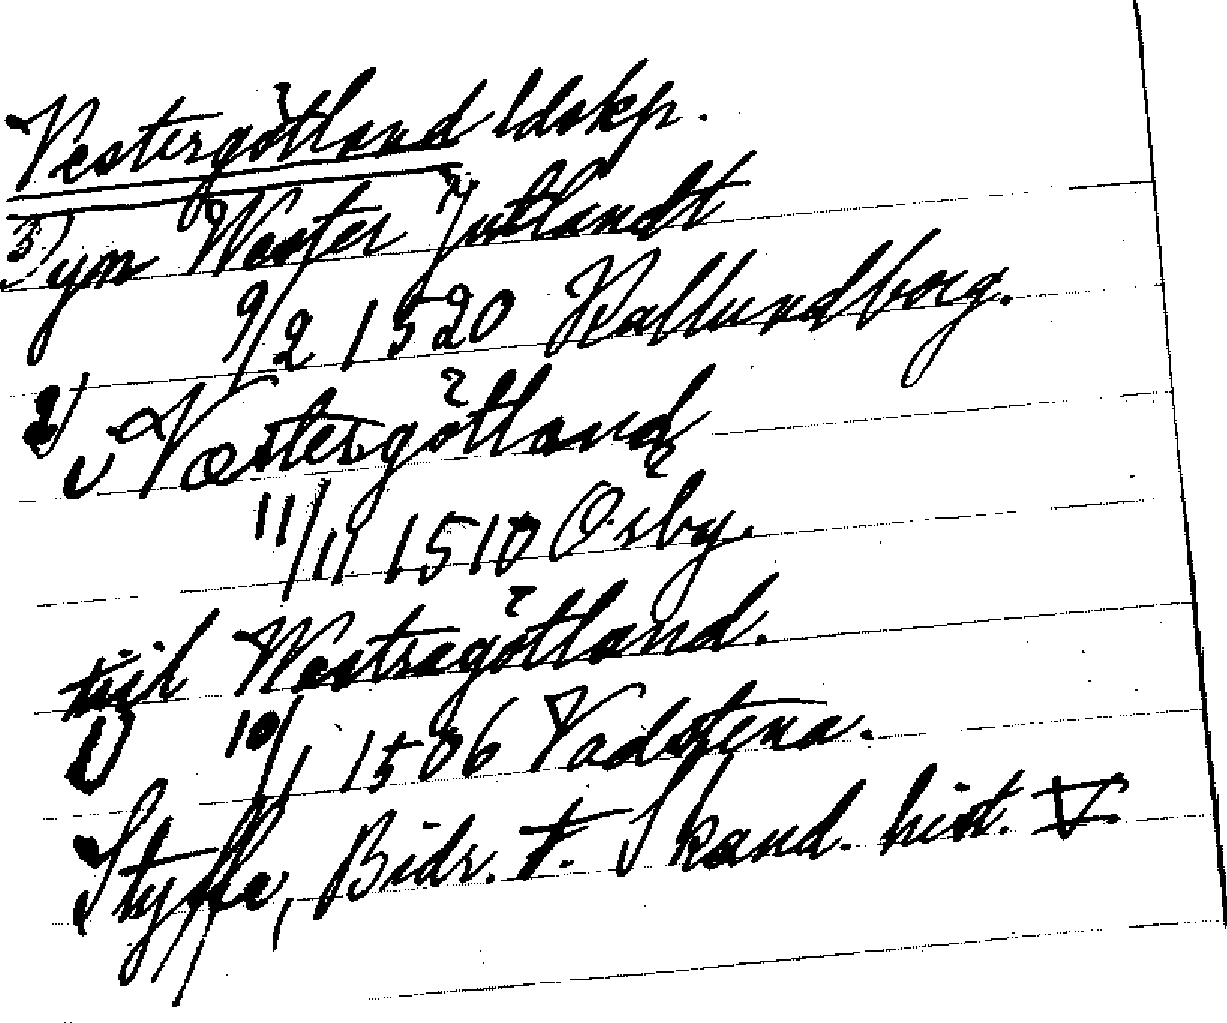 Vestergötland ldskp.
3) ym Wester Jutlandt
9/2 1520 Kallundborg.
2) i Vestergötland
11/11 1510 Örby.
tijl Westregötland.
1) 10/1 1506 Vadstena.
Styffe, Bidr. t. Skand. hist. V.